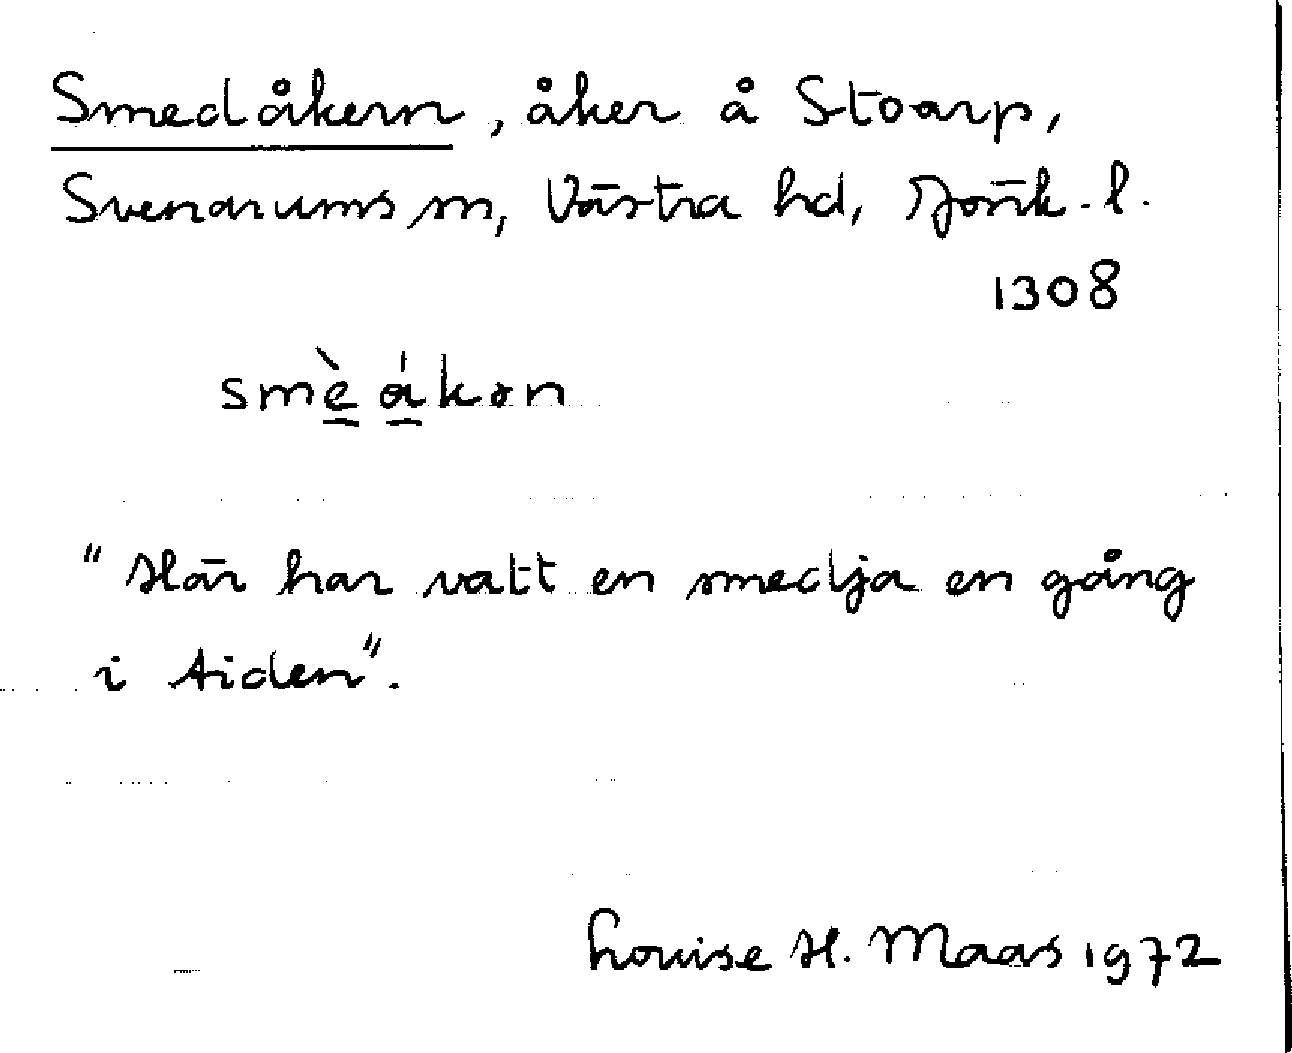 Smedåkern, åker å Stoarp,
Svenarums sn, Västra hd, Jönk. l.
1308
smè̠ á̠kən
"Här har vatt en smedja en gång
i tiden".
Louise H. Maas 1972